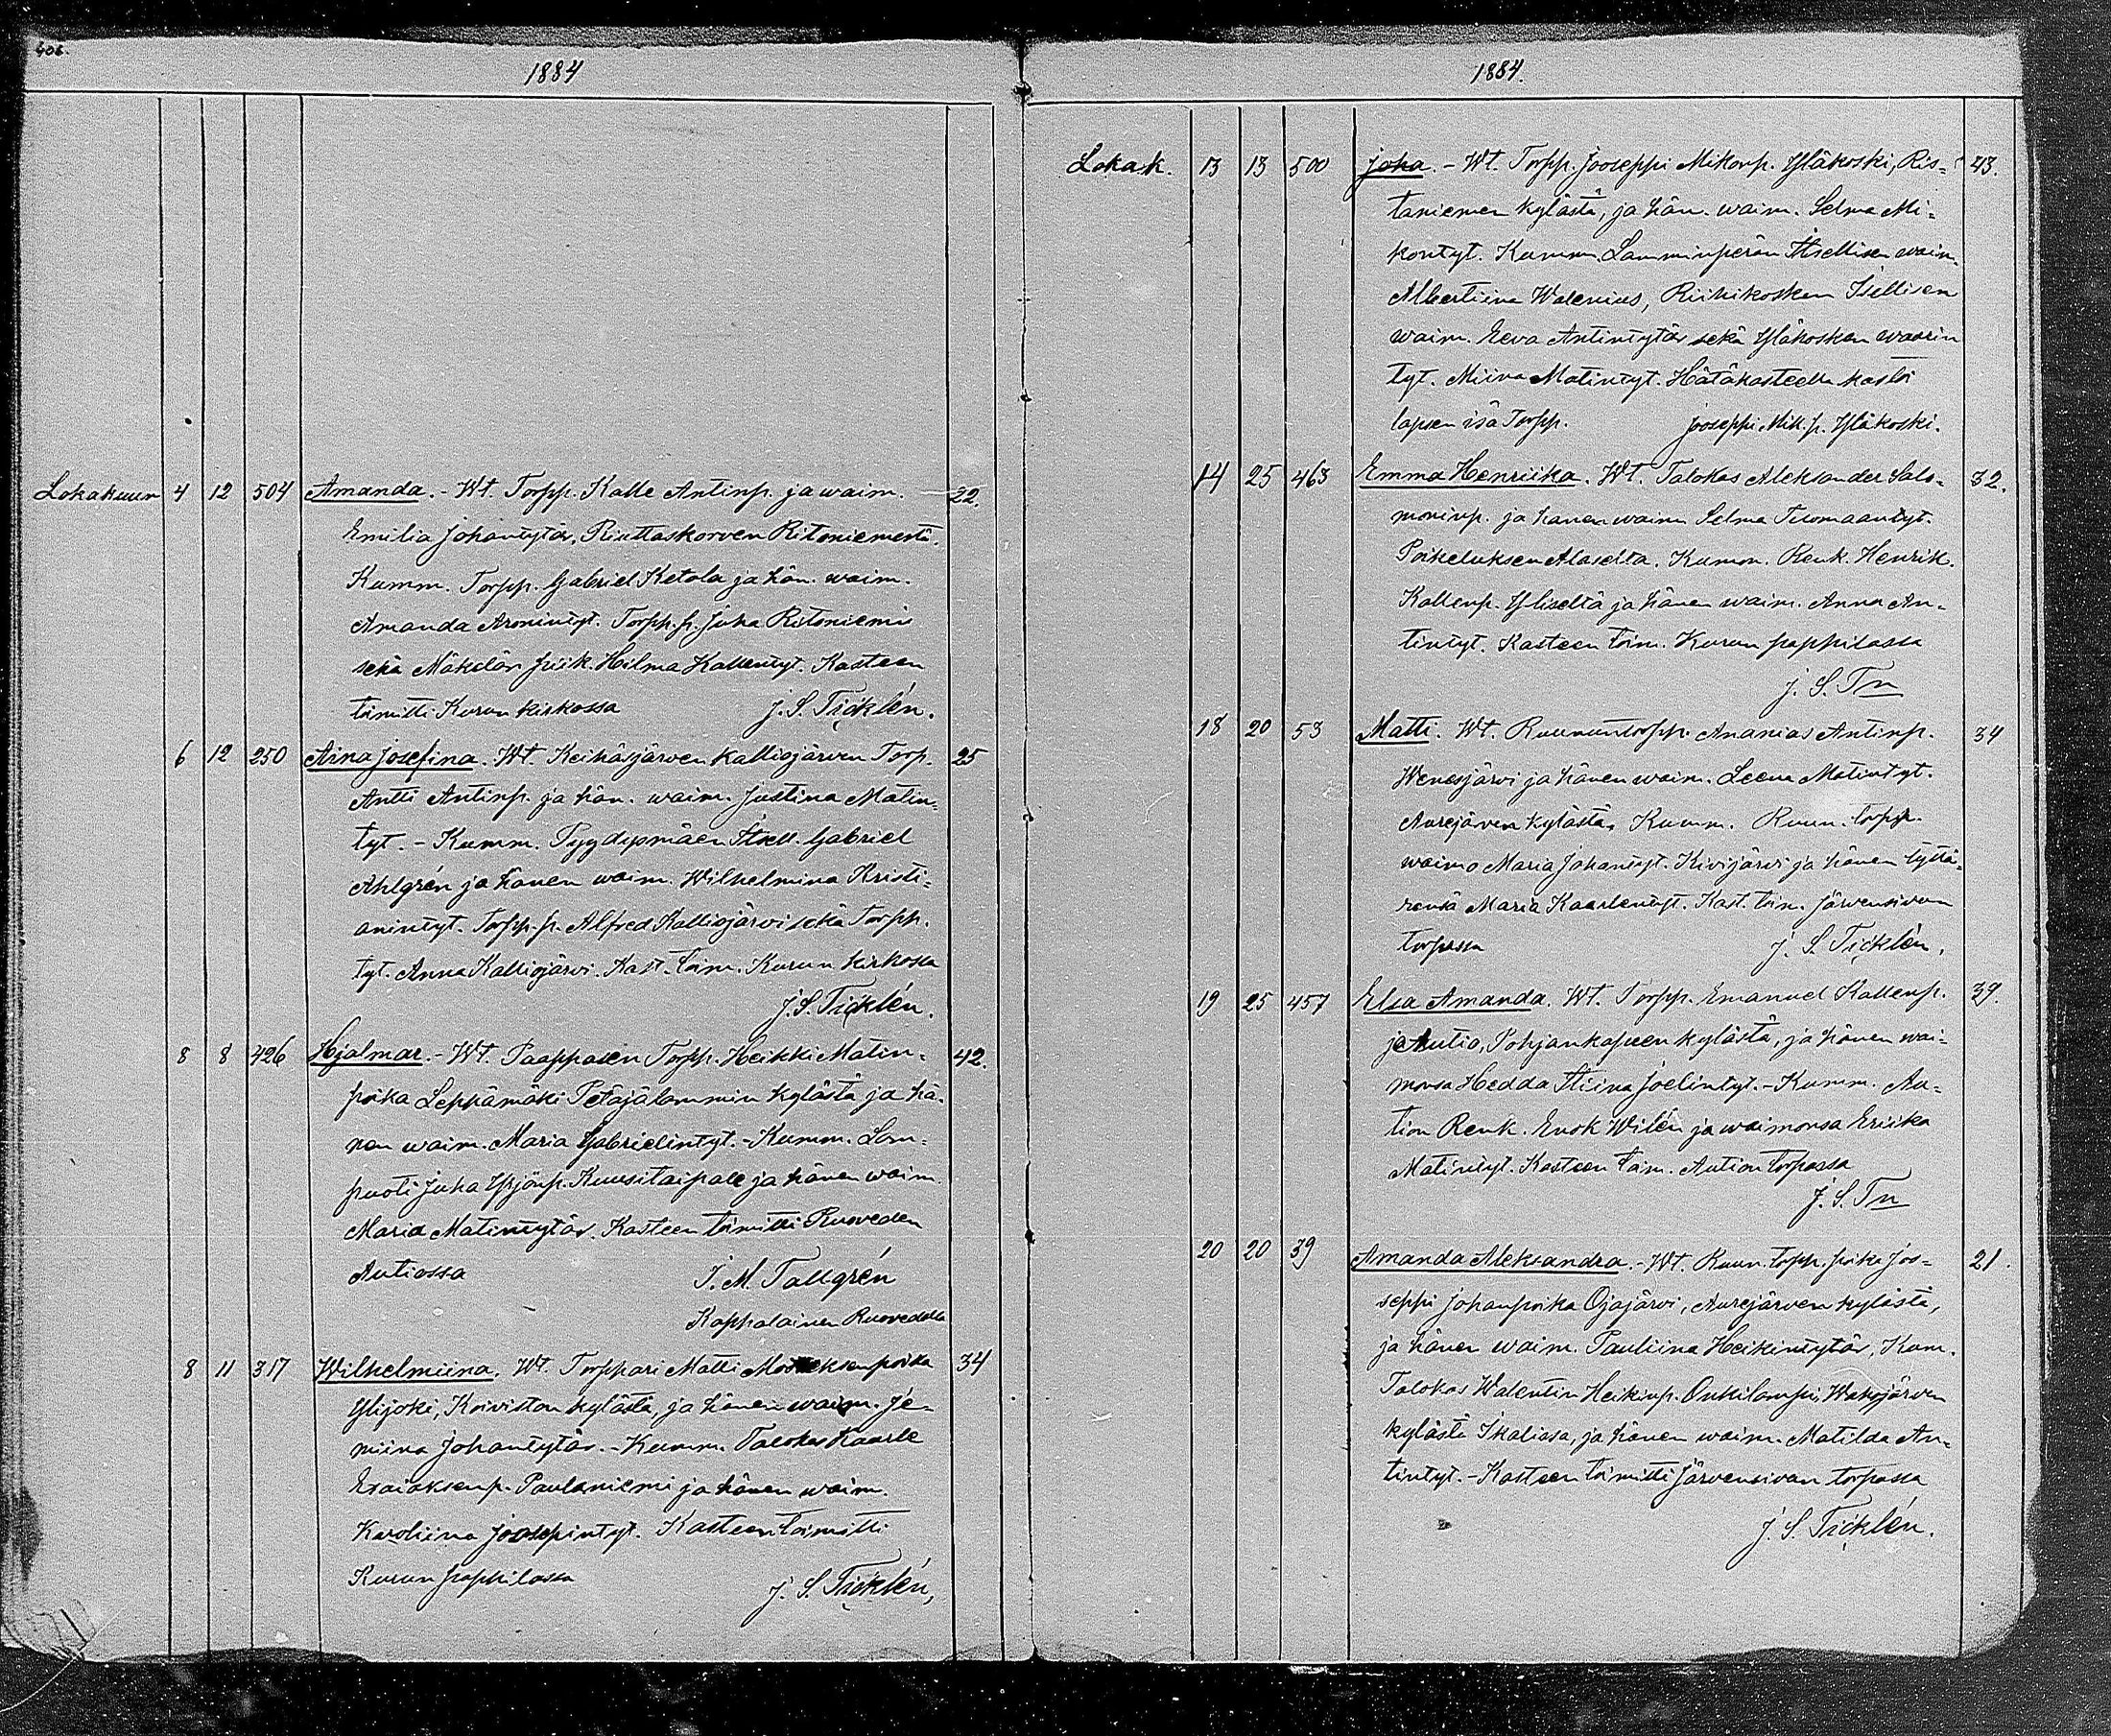 406.
1884
Lokakuun 4 12 504 Amanda. - Wt. Torpp. Kalle Antinp. ja waim. 22.
Emilia Johantytär, Riuttaskorven Ritoniemestä.
Kumm. Torpp. Gabriel Ketola ja hän. waim.
Amanda Aronintyt. Torpp. p. Juha Ritoniemi
sekä Mäkelän piik. Hilma Kallentyt. Kasteen
toimitti Kurun kirkossa J. S. Ticklén.
6 12 250 Aina Josefina. Wt. Keihäsjärven Kalliojärven Torp. 25
Antti Antinp. ja hän. waim. Justina Matin-
tyt. - Kumm. Itsell. Gabriel
Ahlgrén ja hänen waim. Wilhelmina Kristi-
anintyt. Torpp. p. Alfred Kalliojärvi sekä Torpp.
tyt. Anna Kalliojärvi. Kast. toim. Kurun kirkossa
J. S. Ticklén.
8 8 426 Hjalmar. - Wt. Paappasen Torpp. Heikki Matin- 42.
poika Leppämäki Petäjälammin kylästä ja hä-
nen waim. Maria Gabrielintyt. - Kumm. Lam-
puoti Juha Yrjönp. Kuusitaipale ja hänen waim.
Maria Matintytär. Kasteen toimitti Ruoveden
Autiossa J. M. Tallgrén
Kappalainen Ruovedellä
8 11 317 Wilhelmiina. Wt. Torppari Matti 34
Ylijoki, Koiviston kylästä, ja hänen waim. Je-
miina Johantytär. - Kumm. Talokas Kaarle
Esaiaksenp. Paulaniemi ja hänen waim.
Karoliina Joosepintyt. Kasteen toimitti
Kurun pappilassa J. S. Ticklén,
1884.
Lokak. 13 13 500 Joha. - Wt. Torpp. Jooseppi Mikonp. Yläkoski, Ris- 43.
taniemen kylästä, ja hän. waim. Selma Mi-
kontyt. Kumm. Lamminperän Itsellisen waim.
Albertiina Walenius, Riihikosken Itsellisen
waim. Eeva Antintytär sekä Yläkosken waarin
tyt. Miina Matintyt. Hätäkasteella kastoi
lapsen isä Torpp. Jooseppi Mik. p. Yläkoski.
14 25 463 Emma Henriika. Wt. Talokas Aleksander Salo- 32.
moninp. ja hänen waim Selma Tuomaantyt.
Poikeluksen Alaselta. Kumm. Renk. Henrik.
Kallenp. Yliseltä ja hänen waim. Anna An-
tintyt. Kasteen toim. Kurun pappilassa
J. S. Tn
18 20 53 Matti. Wt. Ruununtorpp. Ananias Antinp. 34
Wenesjärvi ja hänen waim. Leena Matintyt.
Aurejärven kylästä. Kumm. Ruun. torpp.
waimo Maria Johantyt. Kivijärvi ja hänen tyttä-
rensä Maria Kaarlentyt. Kast. toim. Järvensivun
torpassa J. S. Ticklén,
19 25 457 Elsa Amanda. Wt. Torpp. Emanuel Kallenp. 39.
ja Autio, Pohjankapeen kylästä, ja hänen wai-
monsa Hedda Stiina Joelintyt. - Kumm. Au-
tion Renk. Enok Wilén ja waimonsa Eriika
Matintyt. Kasteen toim. Aution torpassa
J. S. Tn
20 20 39 Amanda Aleksandra. - Wt. Ruun. torpp. poika Joo- 21.
seppi Johanpoika Ojajärvi, Aurejärven kylästä,
ja hänen waim. Pauliina Heikintytär, Kum.
Talokas Walentin Heikinp. Onkilampi, Wahojärven
kylästä Ikalissa, ja hänen waim. Matilda An-
tintyt. - Kasteen toimitti Järvensivun torpassa
J. S. Ticklén.